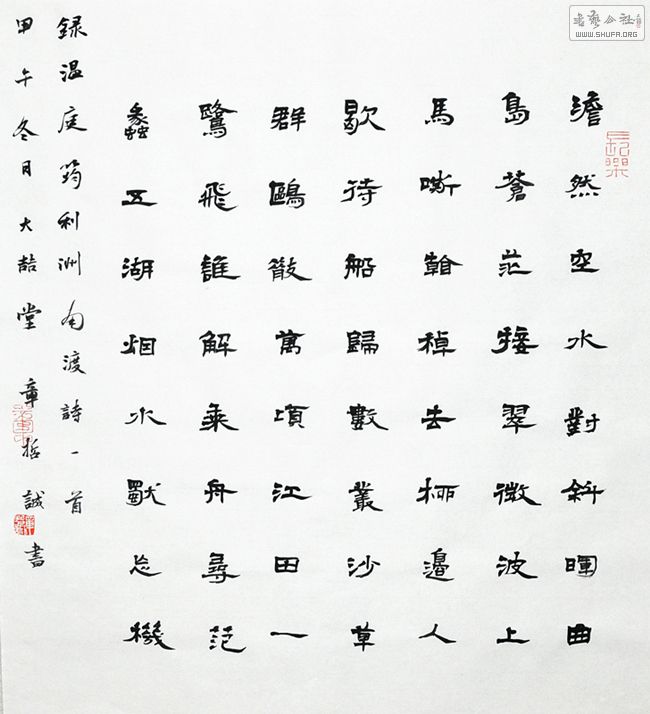 澹然空水對斜暉曲
島蒼茫接翠微波上
馬嘶看棹去柳邊人
歇待船歸數叢沙草
群鷗散萬頃江田一
鷺飛誰解乘舟尋范
蠡五湖烟水獨忘機
録温庭筠利洲南渡詩一首
甲午冬月大喆堂章哲誠書
書藝公社
WWW.SHUFA.ORG